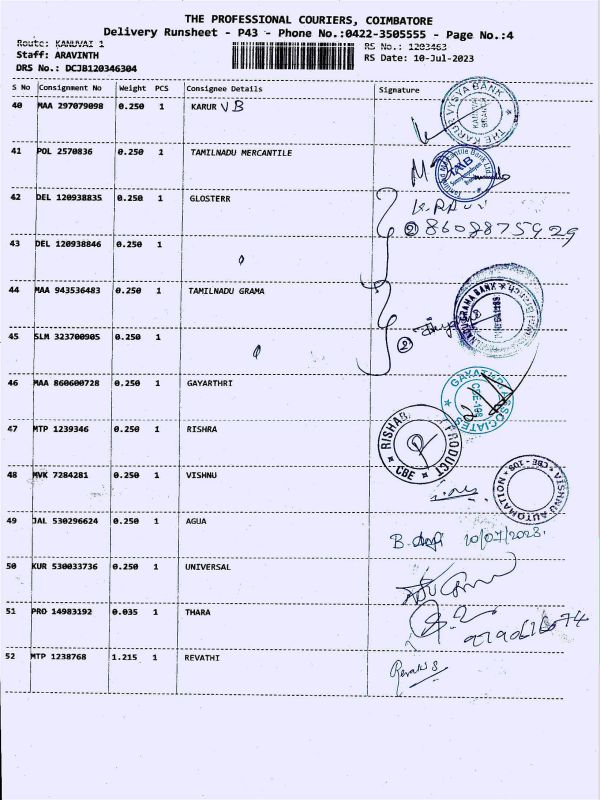 THE PROFESSIONAL COURIERS, COIMBATORE
Delivery Runsheet - P43 - Phone No.:0422-3505555 - Page No.:4
Route: KANUVAI 1
RS No.: 1203463
Staff: ARAVINTH
RS Date: 10-Jul-2023
DRS No.: DCJB120346304
S No Consignment No Weight PCS Consignee Details Signature
40 MAA 297079098 0.250 1 KARUR VB
THE KARUR VYSYA BANK
41 POL 2570836 0.250 1 TAMILNADU MERCANTILE
Tamilnad Mercantile Bank Ltd
TMB
42 DEL 120938835 0.250 1 GLOSTERR
② 8608875929
43 DEL 120938846 0.250 1
44 MAA 943536483 0.250 1 TAMILNADU GRAMA
GRAMA BANK
②
45 SLM 323700905 0.250 1
46 MAA 860600728 0.250 1 GAYARTHRI
47 MTP 1239346 0.250 1 RISHRA
RISHAB PRODUCT
CBE
48 MVK 7284281 0.250 1 VISHNU
VISHNU AUTOMATION
CBE - 108
49 JAL 530296624 0.250 1 AGUA
10/07/2023.
50 KUR 530033736 0.250 1 UNIVERSAL
51 PRO 14983192 0.035 1 THARA
52 MTP 1238768 1.215 1 REVATHI